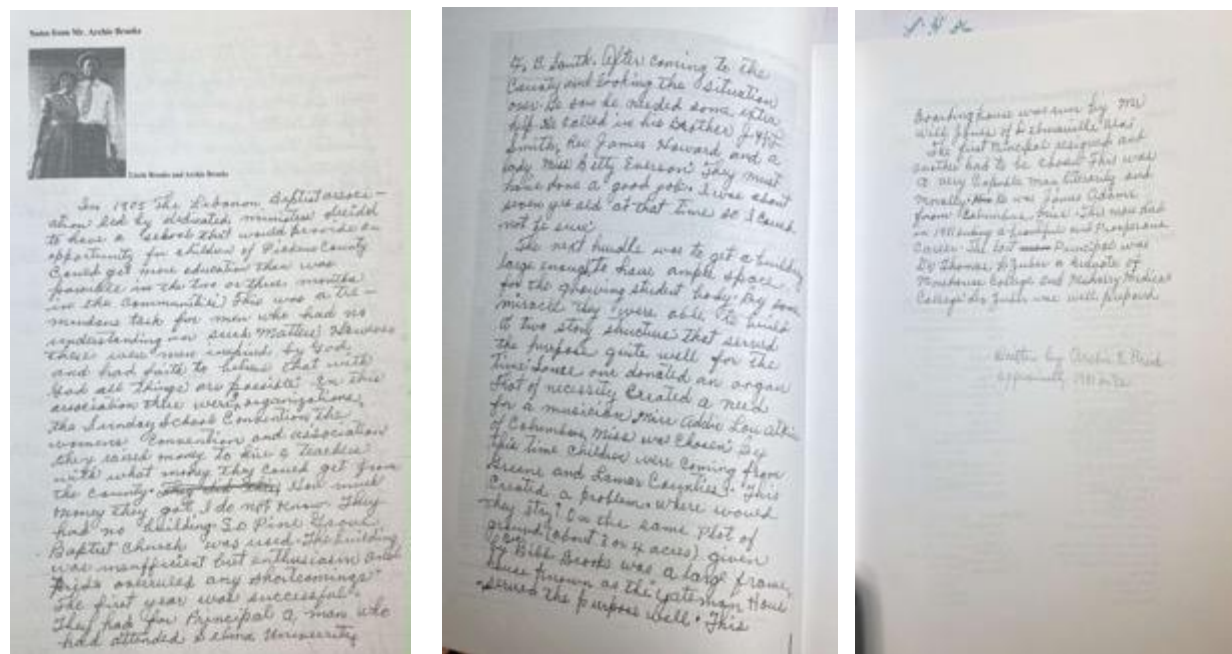 Notes from Mr. Archie Brooks
Lizzie Brooks and Archie Brooks
In 1905 The Lebanon Baptist associ-
ation led by dedicated ministers decide
to have a school that would provide an
opportunity for children of Pickens County
could get more education than was
possible in the two or three months
in the communities. This was a tre-
mendous task for men who had no
understanding in such matters. However
these were men inspired by God
and had faith to believe that with
God all things are possible. In this
association there were organizations,
the Sunday School Convention the
womens Convention and association
they raised money to hire 4 teachers
with what money they could get from
the County. How much
money they got, I do not know. They
had no building. So Pine Grove
Baptist Church was used. The building
was insufficient but enthusiasm and
Pride overruled any shortcomings.
The first year was successful.
They had for Principal a man who
had attended Selma University
B. Smith. After coming to the
County and looking the situation
over he saw he needed some extra
help. He called in his Brother
Smith, Rev James Howard, and a
lady Miss Betty Everson. They must
have done a good job. I was about
seven yrs old at that time so I
not be sure.
The next hurdle was to get a building
large enough to have ample space
for the growing student body. By some
miracle they were able to build
a two story structure that served
the purpose quite well for the
time. Some one donated an organ
that of necessity created a need
for a musician. Miss Addie Lou
of Columbus, Miss was chosen. By
this time children were coming from
Greene and Lamar Counties. This
created a problem. Where would
they stay? On the same Plot of
ground (about 3 or 4 acres) given
by Bibb Brooks was a large frame
house known as the
served the purpose well. This
Boarding house was run by Mr
Will Jones of
The first Principal resigned and
another had to be chosen. This was
a very capable man literarily and
Morally. He was James Adams
from Columbus, Miss. This man died
in 1911 ending a fruitful and Prosperous
Career. The last Principal was
Dr Thomas a graduate of
Morehouse College and Meharry Medical
College. Dr was well prepared
Written by Archie